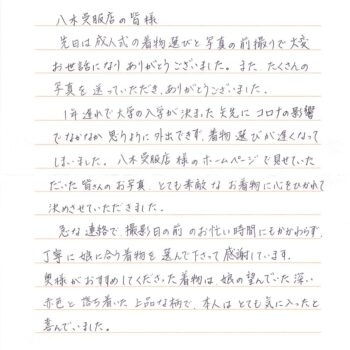 八木呉服店の皆様
先日は成人式の着物選びと写真の前撮りで大変
お世話になりありがとうございました。また、たくさんの
写真を送っていただき、ありがとうございました。
1年遅れで大学の入学が決まった矢先にコロナの影響
でなかなか思うように外出できず、着物選びが遅くなって
しまいました。八木呉服店様のホームページで見せていた
だいた皆さんのお写真、とても素敵なお着物に心をひかれて
決めさせていただきました。
急な連絡で、撮影日の前のお忙い時間にもかかわらず、
丁寧に娘に合う着物を選んで下さって感謝しています。
奥様がおすすめしてくださった着物は娘の望んでいた深い
赤色と落ち着いた上品な柄で、本人はとても気に入ったと
喜んでいました。